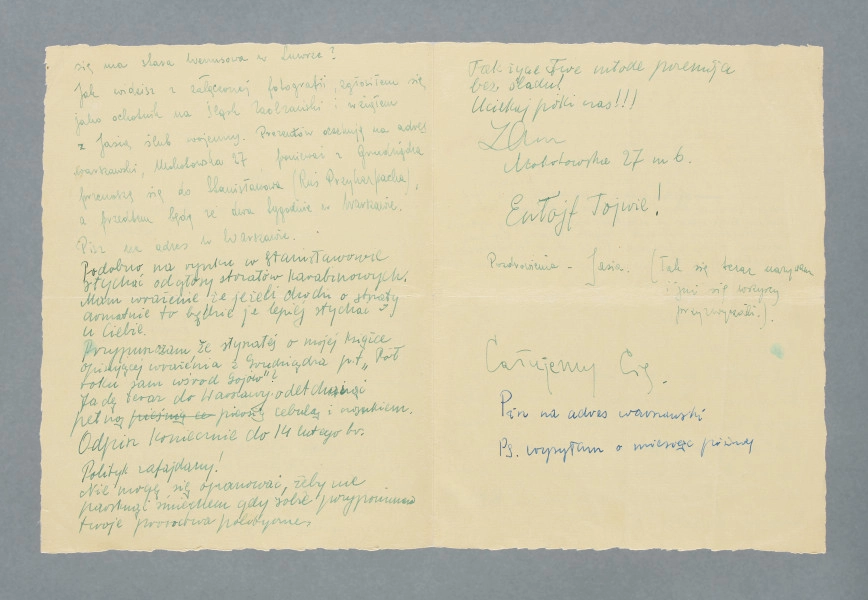 się ma sława w Luwrze?
Jak widzisz z załączonej fotografii, zgłosiłem się
jako ochotnik na Śląsk Zaolzański i wziąłem
z Jasią ślub wojenny. Procentów oczekuję na adres
Warszawski, Mokotowska 27 ponieważ z Grudziądza
przenoszą się do Stanisławowa (Ruś Przykarpacka),
a przedtem będę ze dwa tygodnie w Warszawie.
Pisz na adres w Warszawie.
Podobno na rynku w Stanisławowie
słychać odgłosy strzałów karabinowych.
Mam wrażenie że jeżeli chodzi o strzały
armatnie to będzie je lepiej słychać
u Ciebie.
Przypuszczam, że słyszałeś o mojej książce
opisującej wrażenia z Grudziądza p.t. „Pół
roku sam wśród Gojów"?
Jadę teraz do Warszawy odetchnąć
pełną piersią cebulą i czosnkiem.
Odpisz koniecznie do 14 lutego br.
Polityk zafajdany!
Nie mogę się opanować, żeby nie
parsknąć śmiechem gdy sobie przypominam
twoje proroctwa polityczne,
Tak życie Twe młode przemija
bez śladu!
Uciekaj póki czas!!!
Mokotowska 27 m 6.
Entojf Tojwie!
Pozdrowienia – Jasia. (Tak się teraz nazywam
i już się wszyscy
przyzwyczaili.).
Całujemy Cię.
Pisz na adres warszawski
Ps. wysyłam o miesiąc później